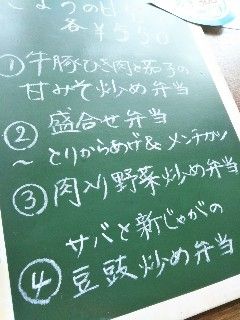 きょうの日替
各￥550
①牛豚ひき肉と茄子の
甘みそ炒め弁当
②盛合せ弁当
～とりからあげ&メンチカツ
③肉入り野菜炒め弁当
④サバと新じゃがの
豆豉炒め弁当